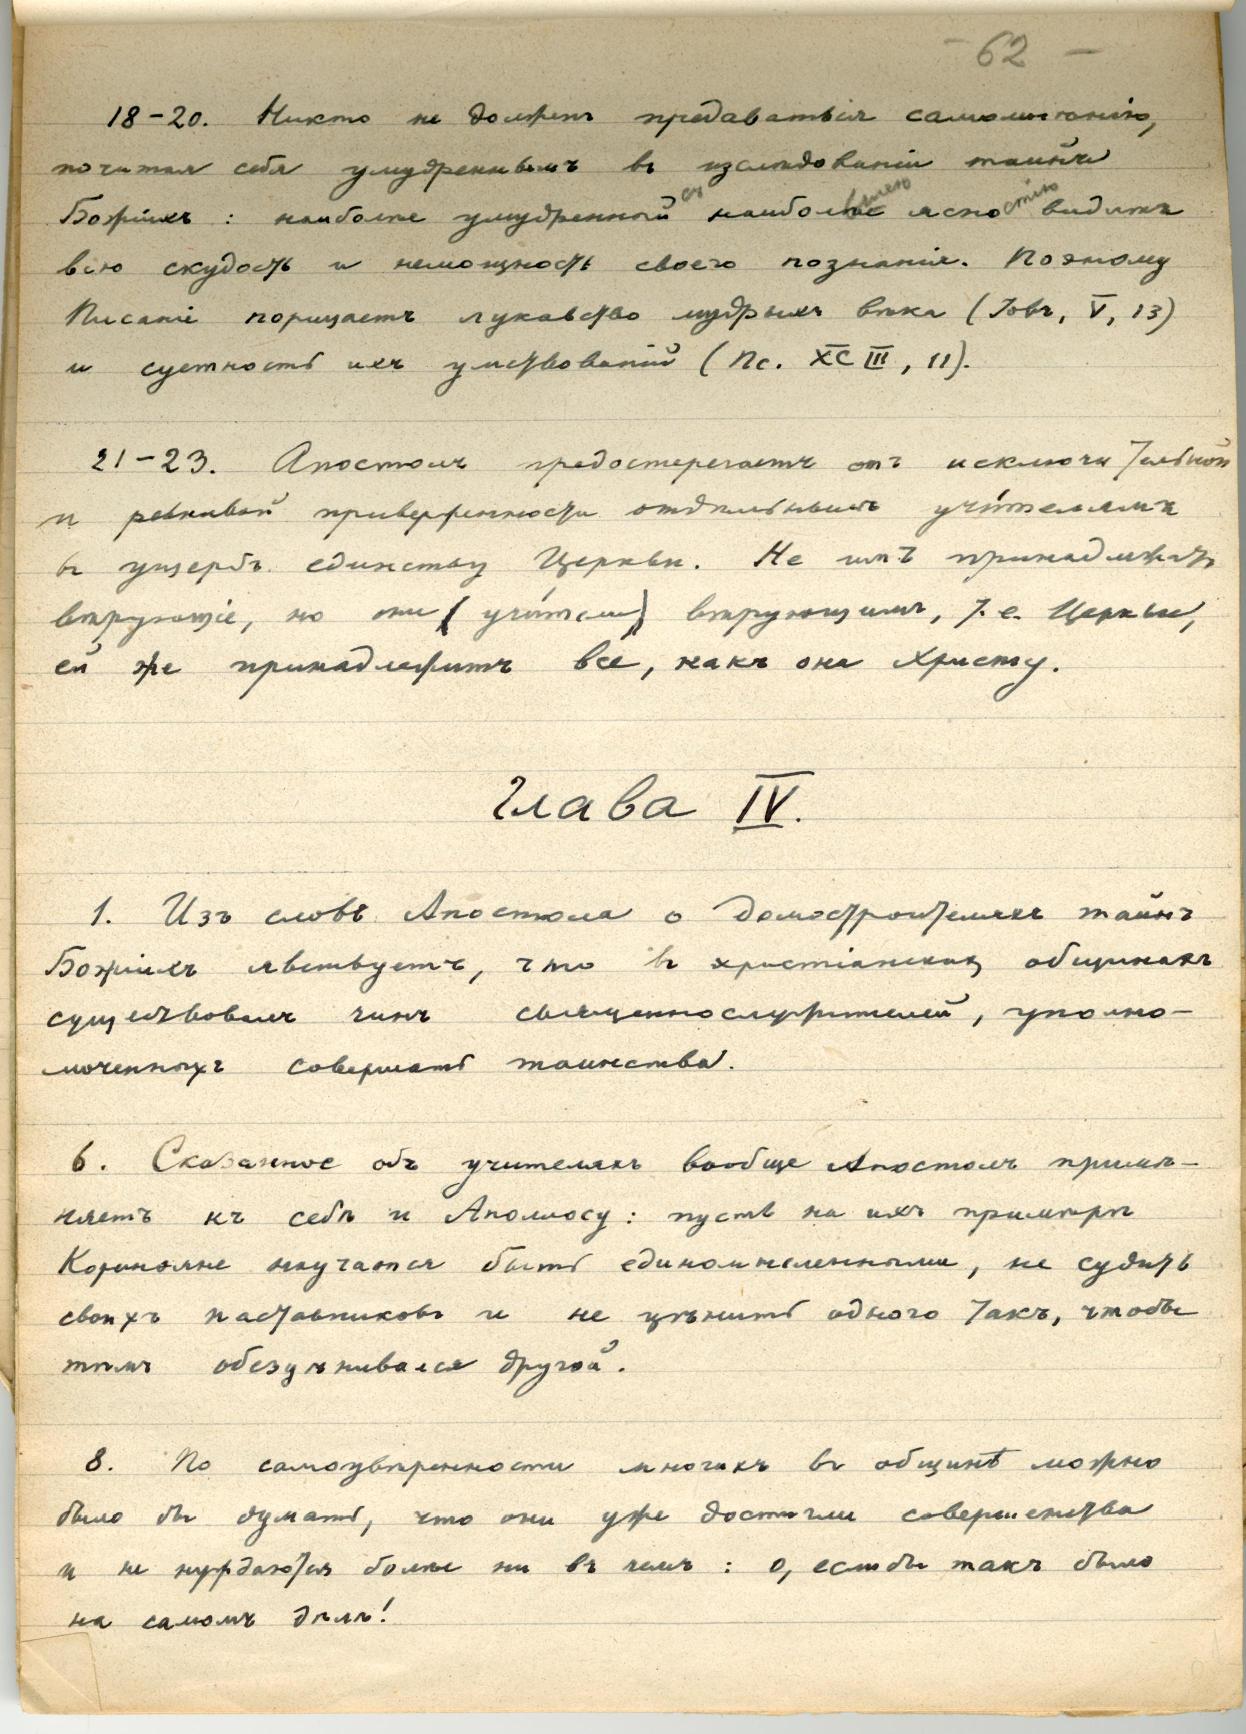 – 62 –
18–20. Никто не долженъ предаваться самомнѣнію,
почитая себя умудреннымъ въ изслѣдованіи тайнъ
Божіихъ: наиболѣе умудренный съ наибольшею ясностію видитъ
всю скудость и немощность своего познанія. Поэтому
Писаніе порицаетъ лукавство мудрыхъ вѣка (Іовъ, V, 13)
и суетность ихъ умствованій (Пс. XCIII, 11).
21–23. Апостолъ предостерегаетъ отъ исключительной
и ревнивой приверженности отдѣльнымъ учи́телямъ
въ ущербъ единству Церкви. Не имъ принадлежатъ
вѣрующіе, но они (учи́тели) вѣрующимъ, т. е. Церкви,
ей же принадлежитъ все, какъ она Христу.
Глава IV.
1. Изъ словъ Апостола о домостроителяхъ тайнъ
Божіихъ явствуетъ, что въ христіанскихъ общинахъ
существовалъ чинъ священнослужителей, уполно-
моченныхъ совершать таинства.
6. Сказанное объ учителяхъ вообще Апостолъ примѣ-
няетъ къ себѣ и Аполлосу: пусть на ихъ примѣрѣ
Коринѳяне научатся быть единомысленными, не судить
своихъ наставниковъ и не цѣнить одного такъ, чтобы
тѣмъ обезцѣнивался другой.
8. По самоувѣренности многихъ въ общинѣ можно
было бы думать, что они уже достигли совершенства
и не нуждаются болѣе ни въ чемъ: о, если бы такъ было
на самомъ дѣлѣ!